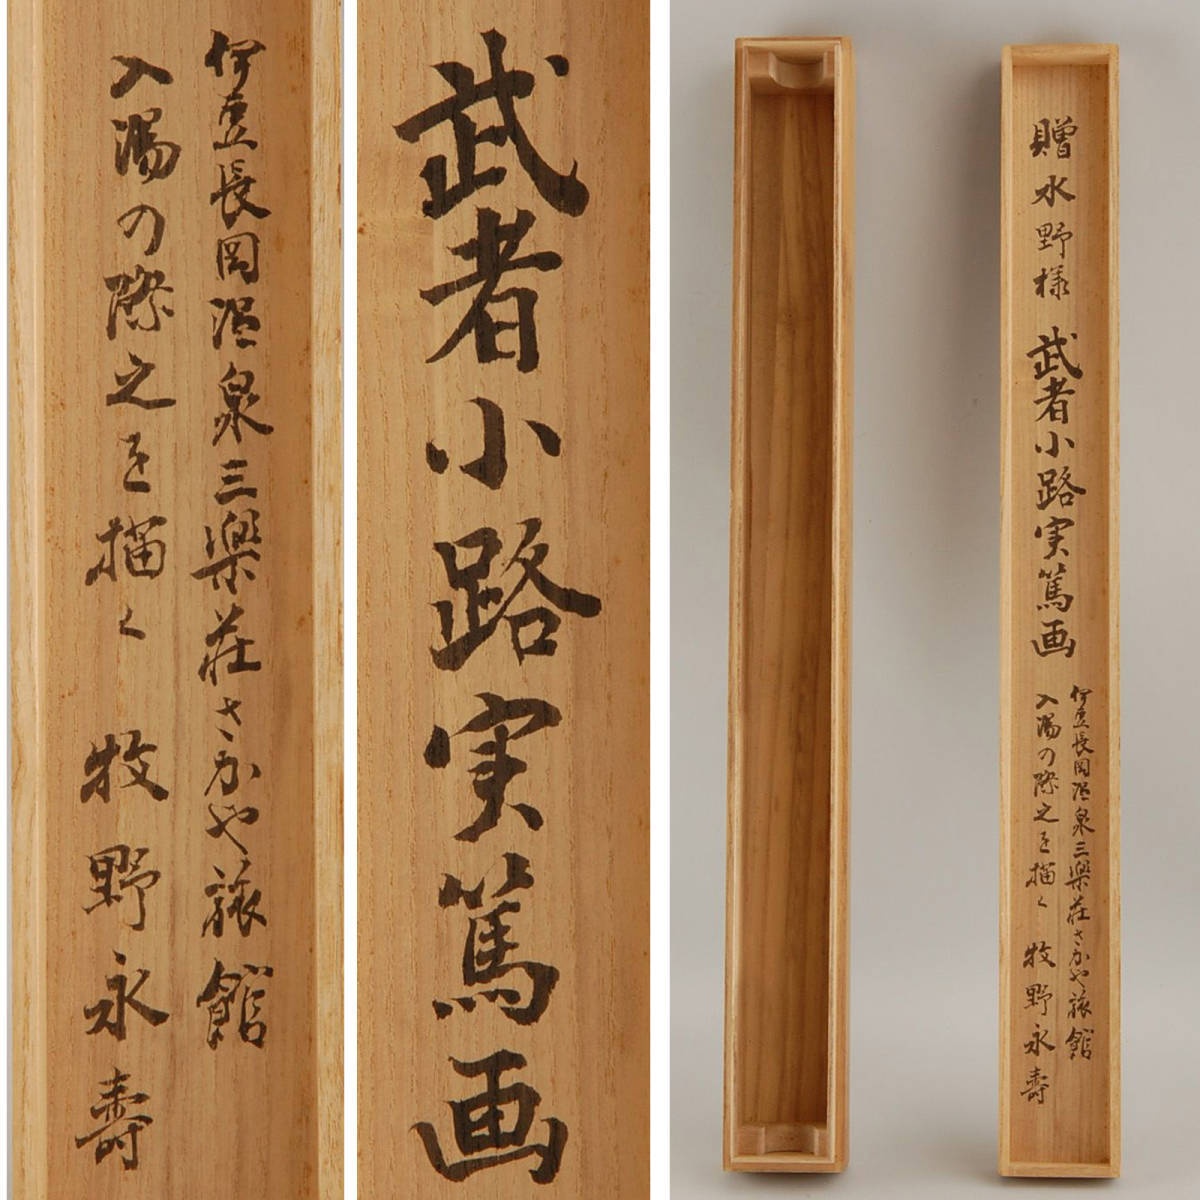 伊豆長岡温泉三楽荘さかや旅館
入湯の際之を描く 牧野永壽
武者小路実篤画
贈水野様 武者小路実篤画
伊豆長岡温泉三楽荘さかや旅館
入湯の際之を描く 牧野永壽